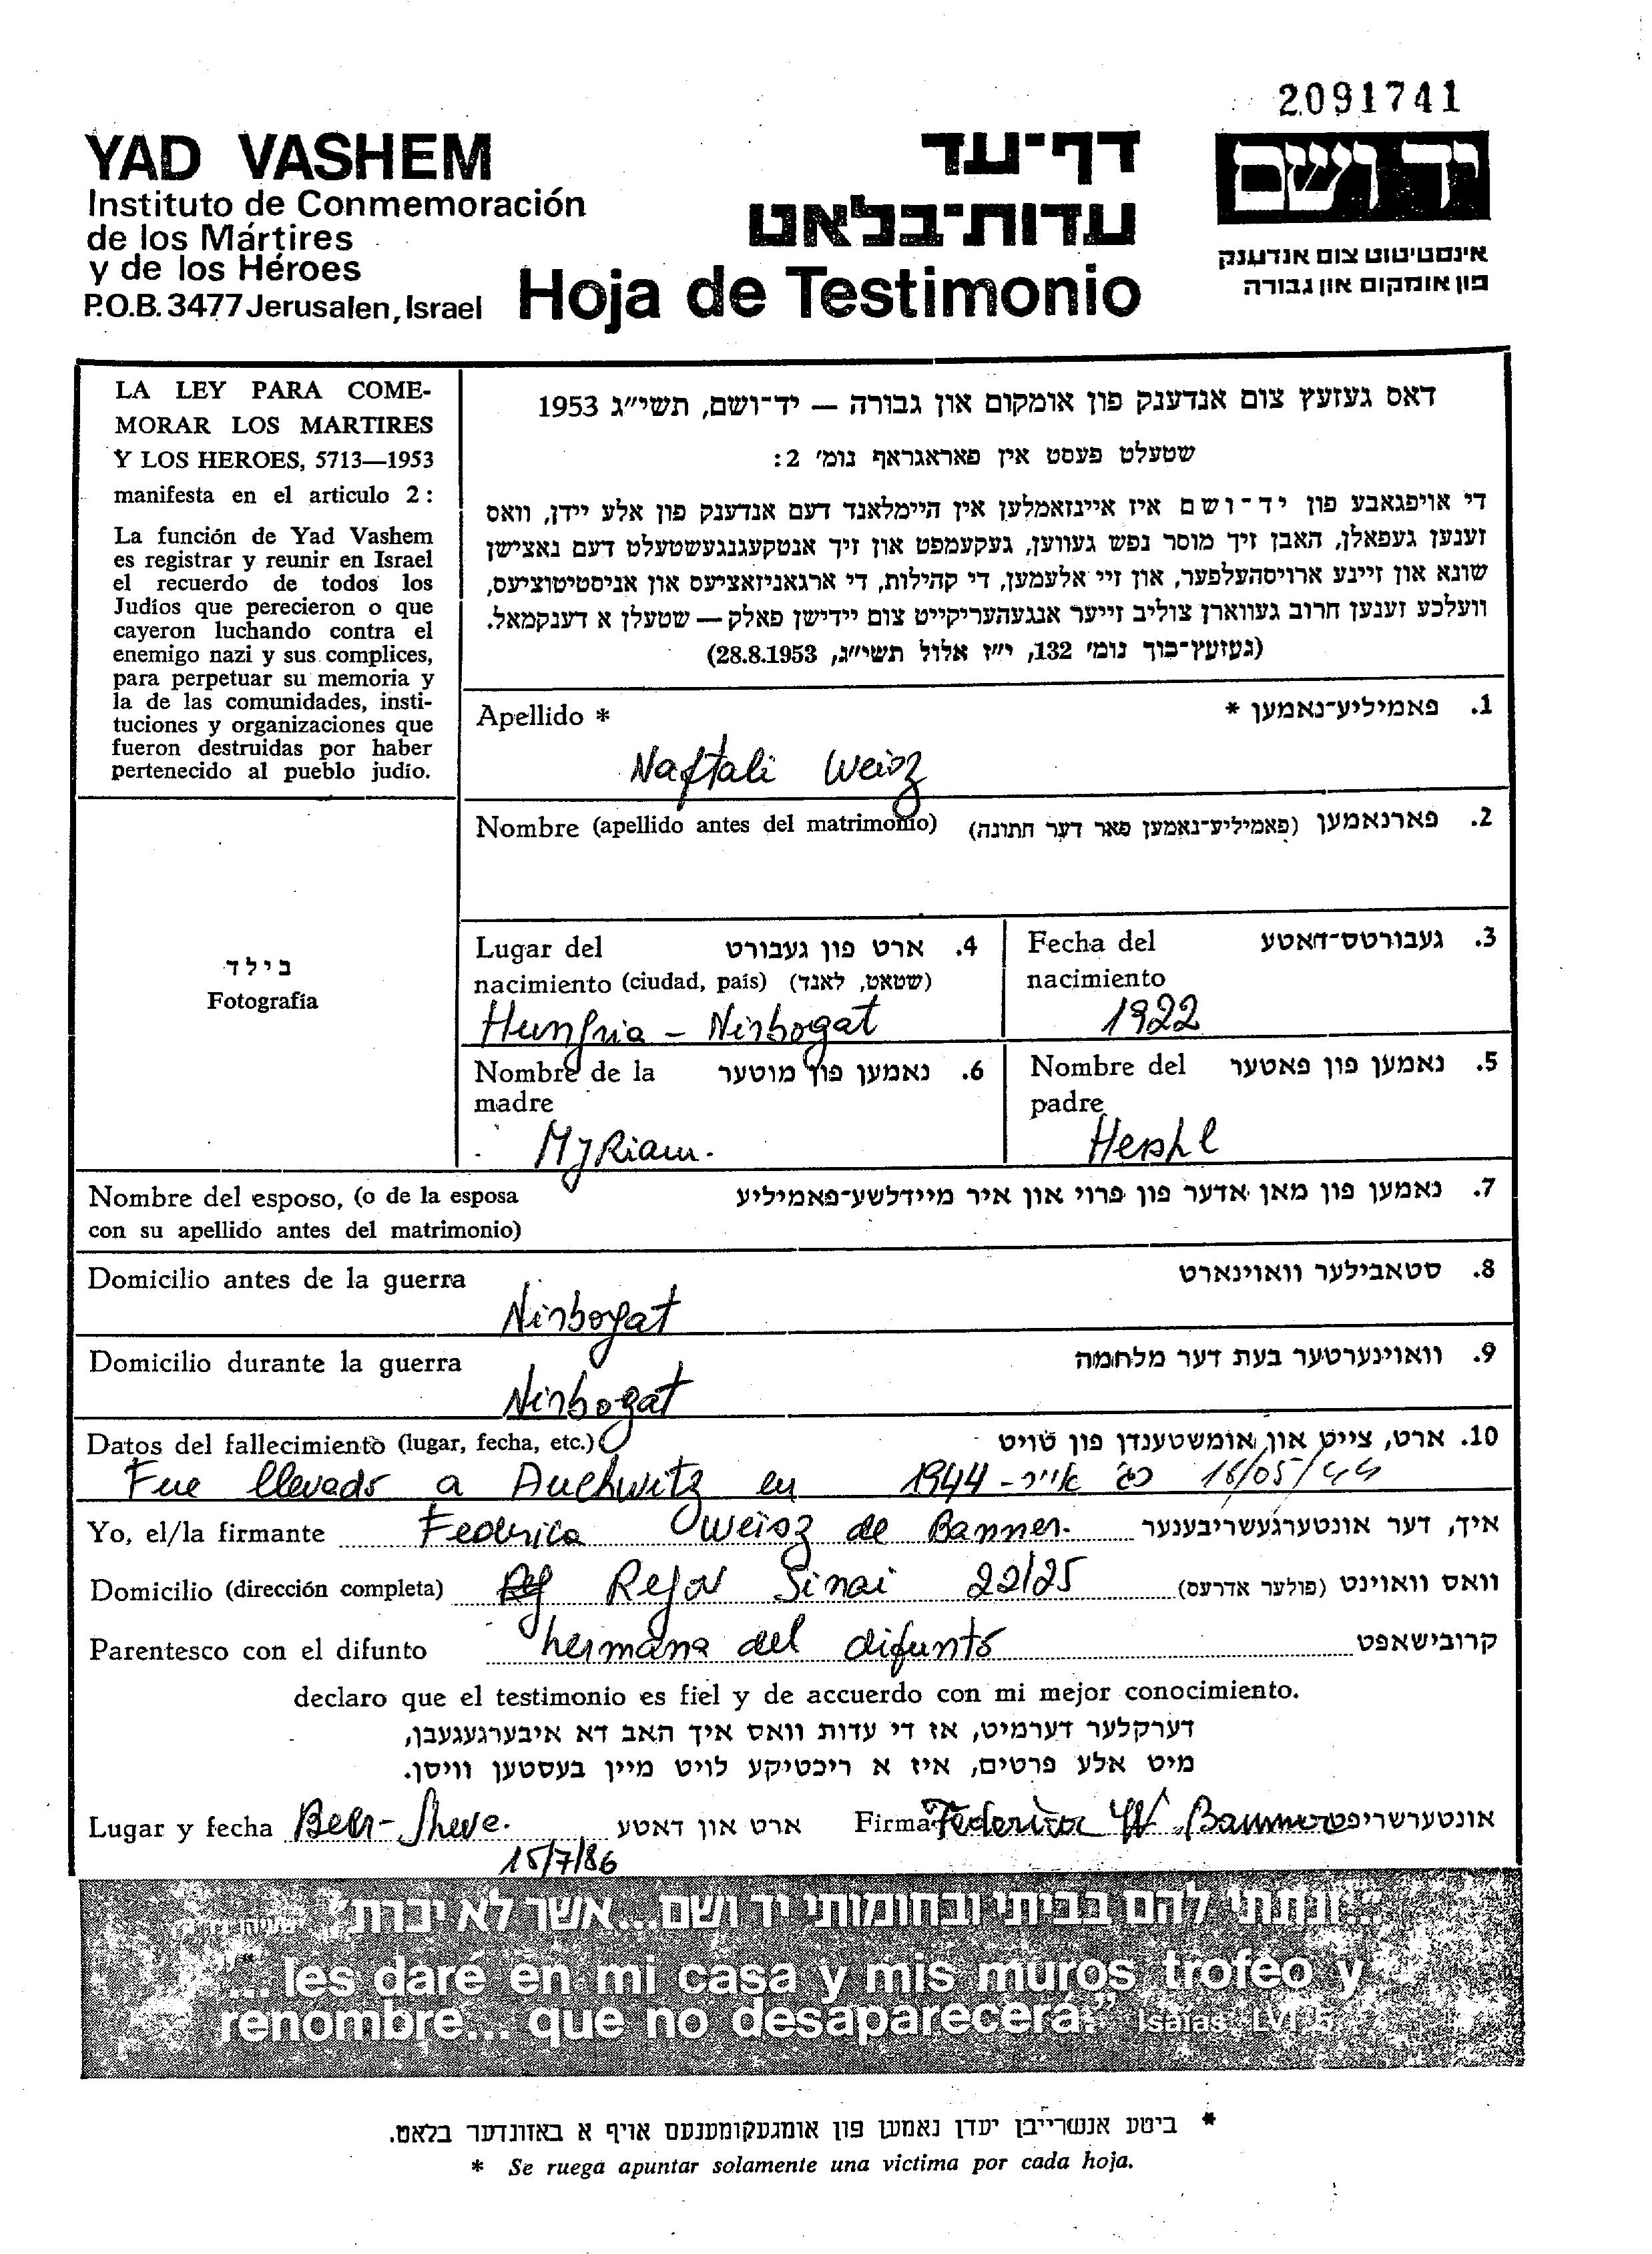 2091741
YAD VASHEM
Instituto de Conmemoración
de los Mártires
y de los Héroes
P.O.B. 3477 Jerusalen, Israel
דף-עד
עדות-בלאט
Hoja de Testimonio
יד ושם
אינסטיטוט צום אנדענק
פון אומקום און גבורה
LA LEY PARA COME-
MORAR LOS MARTIRES
Y LOS HEROES, 5713—1953
manifesta en el articulo 2:
La función de Yad Vashem
es registrar y reunir en Israel
el recuerdo de todos los
Judios que perecieron o que
cayeron luchando contra el
enemigo nazi y sus complices,
para perpetuar su memoria y
la de las comunidades, insti-
tuciones y organizaciones que
fueron destruidas por haber
pertenecido al pueblo judío.
דאס געזעץ צום אנדענק פון אומקום און גבורה — יד-ושם, תשי״ג 1953
שטעלט פעסט אין פאראגראף נומ׳ 2:
די אויפגאבע פון יד-ושם איז איינזאמלען אין היימלאנד דעם אנדענק פון אלע יידן, וואס
זענען געפאלן, האבן זיך מוסר נפש געווען, געקעמפט און זיך אנטקעגנגעשטעלט דעם נאצישן
שונא און זיינע ארויסהעלפער, און זיי אלעמען, די קהילות, די ארגאניזאציעס און אניסטיטוציעס,
וועלכע זענען חרוב געווארן צוליב זייער אנגעהעריקייט צום יידישן פאלק — שטעלן א דענקמאל.
(געזעץ-בוך נומ׳ 132, י״ז אלול תשי״ג, 28.8.1953)
Apellido * 1. פאמיליע-נאמען *
Naftali Weisz
Nombre (apellido antes del matrimonio) 2. פארנאמען (פאמיליע-נאמען פאר דער חתונה)
בילד
Fotografía
Lugar del 4. ארט פון געבורט
nacimiento (ciudad, país) (שטאט, לאנד)
Hungria - Nirbogat
Fecha del 3. געבורטס-דאטע
nacimiento
1922
Nombre de la 6. נאמען פון מוטער
madre
Myriam.
Nombre del 5. נאמען פון פאטער
padre
Hershl
Nombre del esposo, (o de la esposa 7. נאמען פון מאן אדער פון פרוי און איר מיידלשע-פאמיליע
con su apellido antes del matrimonio)
Domicilio antes de la guerra 8. סטאבילער וואוינארט
Nirbogat
Domicilio durante la guerra 9. וואוינערטער בעת דער מלחמה
Nirbogat
Datos del fallecimiento (lugar, fecha, etc.) 10. ארט, צייט און אומשטענדן פון טויט
Fue llevado a Auchwitz en 1944 - כג׳ אייר 16/05/44
Yo, el/la firmante Federica Weisz de Banner. איך, דער אונטערגעשריבענער
Domicilio (dirección completa) Rejov Sinai 22/25 וואס וואוינט (פולער אדרעס)
Parentesco con el difunto hermana del difunto קרובישאפט
declaro que el testimonio es fiel y de accuerdo con mi mejor conocimiento.
דערקלער דערמיט, אז די עדות וואס איך האב דא איבערגעגעבן,
מיט אלע פרטים, איז א ריכטיקע לויט מיין בעסטען וויסן.
Lugar y fecha Beer-Sheve. ארט און דאטע Firma Federica W Banner אונטערשריפט
15/7/86
"...ונתתי להם בביתי ובחומותי יד ושם...אשר לא יכרת"
"... les daré en mi casa y mis muros trofeo y
renombre... que no desaparecerá." Isaías, LVI, 5
* ביטע אנשרייבן יעדן נאמען פון אומגעקומענעם אויף א באזונדער בלאט.
* Se ruega apuntar solamente una victima por cada hoja.